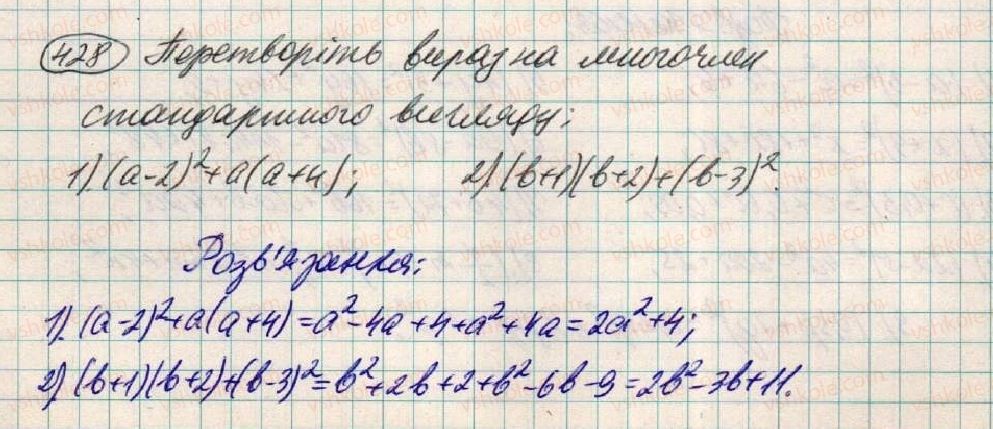 428 Перетворіть вираз на многочлен
стандартного вигляду:
1) (a-2)²+a(a+4); 2) (b+1)(b+2)+(b-3)².
Розв'язання:
1) (a-2)²+a(a+4)=a²-4a+4+a²+4a=2a²+4;
2) (b+1)(b+2)+(b-3)²=b²+2b+2+b²-6b-9=2b²-3b+11.